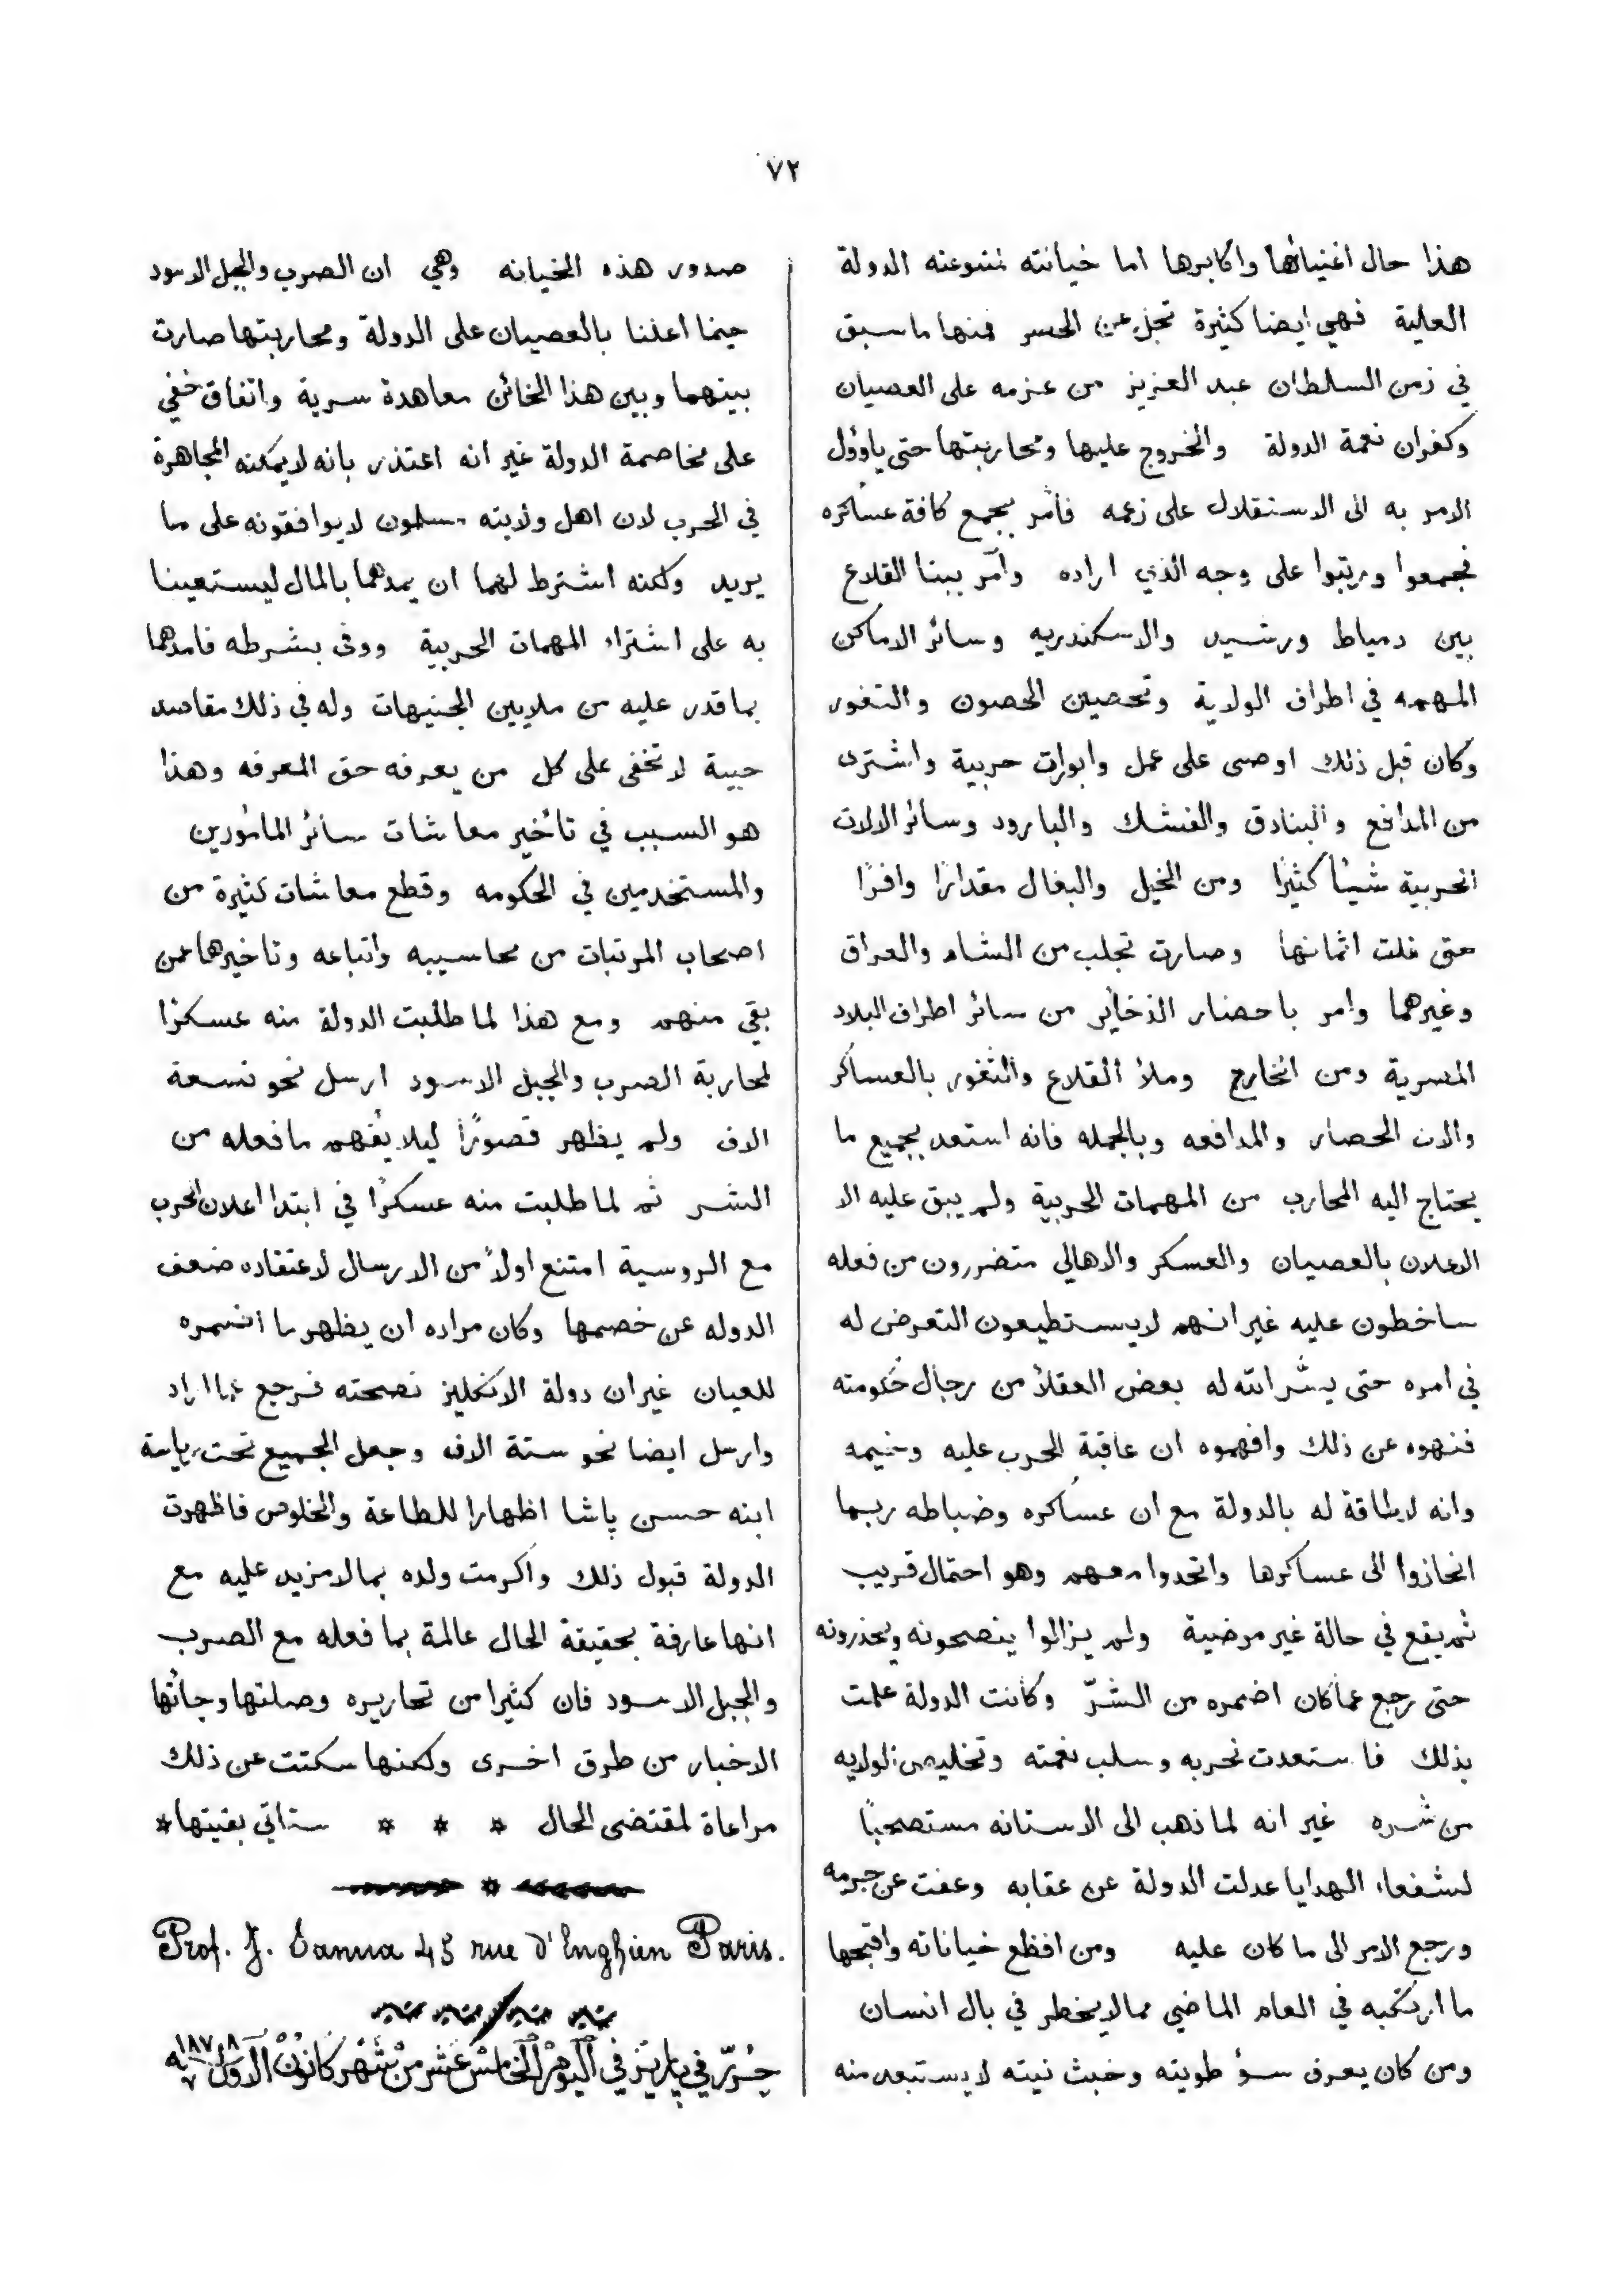 ٧٢
هذا حال اغنيائها واكابرها اما خيانته لمتبوعته الدولة
العلية فهي ايضا كثيرة تجل عن الحصر فمنها ما سبق
في زمن السلطان عبد العزيز من عزمه على العصيان
وكفران نعمة الدولة والخروج عليها ومحاربتها حتى ياوؤل
الامر به الى الاستقلال على زعمه فأمر بجمع كافة عساكره
فجمعوا ورتبوا على وجه الذي اراده وأمر ببنا القلاع
بين دمياط ورشيد والاسكندريه وسائر الاماكن
المهمه في اطراف الولاية وتحصين الحصون والثغور
وكان قبل ذلك اوصى على عمل وابورات حربية واشترى
من المدافع والبنادق والفشك والبارود وسائر الالات
الحربية شيئاً كثيرًا ومن الخيل والبغال مقدارًا وافرًا
حتى غلت اثمانها وصارت تجلب من الشام والعراق
وغيرهما وامر باحضار الذخاير من سائر اطراف البلاد
المصرية ومن الخارج وملأ القلاع والثغور بالعساكر
والات الحصار والمدافعه وبالجمله فانه استعد بجميع ما
يحتاج اليه المحارب من المهمات الحربية ولم يبق عليه الا
الاعلان بالعصيان والعسكر والاهالي متضررون من فعله
ساخطون عليه غير انهم لايستطيعون التعرض له
في امره حتى يسّر الله له بعض العقلأ من رجال حكومته
فنهوه عن ذلك وافهموه ان عاقبة الحرب عليه وخيمه
وانه لاطاقة له بالدولة مع ان عساكره وضباطه ربما
انحازوا الى عساكرها واتحدوا معهم وهو احتمال قريب
ثم يقع في حالة غير مرضية ولم يزالوا ينصحونه ويحذرونه
حتى رجع عما كان اضمره من الشرّ وكانت الدولة علمت
بذلك فاستعدت لحربه وسلب نعمته وتخليص الولايه
من شره غير انه لما ذهب الى الاستانه مستصحبًا
لشفعاء الهدايا عدلت الدولة عن عقابه وعفت عن جرمه
ورجع الامر الى ما كان عليه ومن افظع خياناته واقبحها
ما ارتكبه في العام الماضي مما لايخطر في بال انسان
ومن كان يعرف سؤ طويته وخبث نيته لايستبعد منه
صدور هذه الخيانه وهي ان الصرب والجبل الاسود
حينما اعلنا بالعصيان على الدولة ومحاربتها صارت
بينهما وبين هذا الخائن معاهدة سرية واتفاق خفي
على مخاصمة الدولة غير انه اعتذر بانه لايمكنه المجاهرة
في الحرب لان اهل ولايته مسلمون لايوافقونه على ما
يريد ولكنه اشترط لهما ان يمدهما بالمال ليستعينا
به على اشتراء المهمات الحربية ووفى بشرطه فامدهما
بما قدر عليه من ملايين الجنيهات وله في ذلك مقاصد
خبية لا تخفى على كل من يعرفه حق المعرفه وهذا
هو السبب في تأخير معاشات سائر المأمورين
والمستخدمين في الحكومه وقطع معاشات كثيرة من
اصحاب المرتبات من محاسيبه واتباعه وتاخيرها عمن
بقي منهم ومع هذا لما طلبت الدولة منه عسكرًا
لمحاربة الصرب والجبل الاسود ارسل نحو تسعة
الاف ولم يظهر قصورًا ليلا يفهم ما فعله من
الشر ثم لما طلبت منه عسكرًا في ابتدا اعلان الحرب
مع الروسية امتنع اولاً من الارسال لاعتقاده ضعف
الدوله عن خصمها وكان مراده ان يظهر ما اضمره
للعيان غير ان دولة الانكليز نصحته فرجع عما اراد
وارسل ايضا نحو ستة الاف وجعل الجميع تحت رياسة
ابنه حسن پاشا اظهارا للطاعة والخلوص فاظهرت
الدولة قبول ذلك واكرمت ولده بما لامزيد عليه مع
انها عارفة بحقيقة الحال عالمة بما فعله مع الصرب
والجبل الاسود فان كثيرا من تحاريره وصلتها وجائها
الاخبار من طرق اخرى ولكنها سكتت عن ذلك
مراعاة لمقتضى الحال * * * ستاتي بقيتها *
Prof. J. Sanua 45 rue d'Enghien Paris.
حُرّر في پاريز في اليوم الخامس عشر من شهر كانون الاول